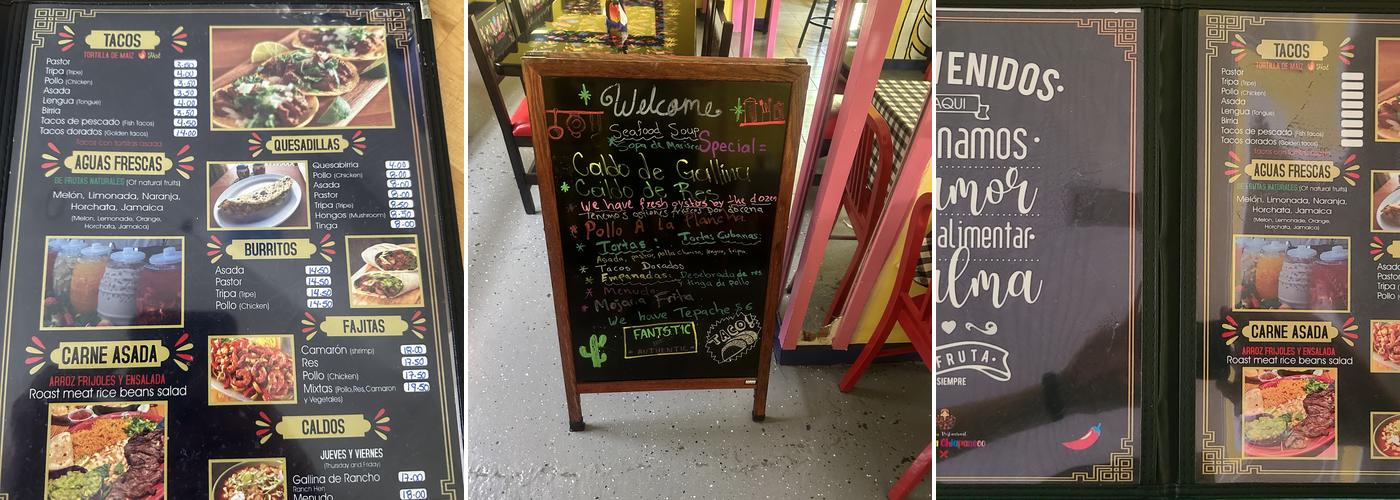 TACOS
TORTILLA DE MAIZ Hot
Pastor 3.50
Tripa (Tripe) 4.00
Pollo (Chicken) 3.50
Asada 3.50
Lengua (Tongue) 4.00
Birria 3.50
Tacos de pescado (Fish tacos) 4.50
Tacos dorados (Golden tacos) 14.00
Tacos con tortillas asada
AGUAS FRESCAS
DE FRUTAS NATURALES (Of natural fruits)
Melón, Limonada, Naranja,
Horchata, Jamaica
(Melon, Lemonade, Orange,
Horchata, Jamaica)
CARNE ASADA
ARROZ FRIJOLES Y ENSALADA
Roast meat rice beans salad
QUESADILLAS
Quesabirria 4.00
Pollo (Chicken) 8.00
Asada 8.00
Pastor 8.00
Tripa (Tripe) 8.50
Hongos (Mushroom) 8.50
Tinga 8.00
BURRITOS
Asada 14.50
Pastor 14.50
Tripa (Tripe) 14.50
Pollo (Chicken) 14.50
FAJITAS
Camarón (shrimp) 18.00
Res 17.50
Pollo (Chicken) 17.50
Mixtas (Pollo,Res,Camaron 19.50
y Vegetales)
CALDOS
JUEVES Y VIERNES
(Thursday and Friday)
Gallina de Rancho 17.00
Ranch Hen
Menudo 18.00
Welcome
Seafood Soup
Sopa de Marisco Special=
Caldo de Gallina
Caldo de Res
* We have fresh oysters by the dozen
Tenemos ostiones frescos por docena
* Pollo A La Plancha
* Tortas: Tortas Cubanas:
Asada, pastor, pollo
* Tacos Dorados
* Empanadas: Desebrada de res
Tinga de Pollo
* Menudo
* Mojarra Frita
We have Tepache $6
FANTSTIC
AUTHENTIC
TACO!
VENIDOS.
AQUI
NAMOS.
amor
alimentar.
alma
FRUTA.
SIEMPRE
Chiapaneco
TACOS
TORTILLA DE MAIZ Hot
Pastor
Tripa (Tripe)
Pollo (Chicken)
Asada
Lengua (Tongue)
Birria
Tacos de pescado (Fish tacos)
Tacos dorados (Golden tacos)
AGUAS FRESCAS
DE FRUTAS NATURALES (Of natural fruits)
Melón, Limonada, Naranja,
Horchata, Jamaica
(Melon, Lemonade, Orange,
Horchata, Jamaica)
CARNE ASADA
ARROZ FRIJOLES Y ENSALADA
Roast meat rice beans salad